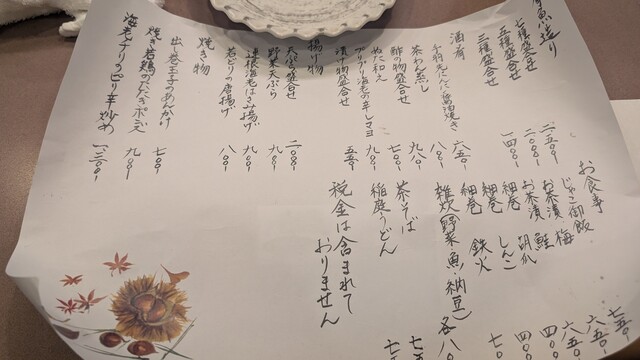 魚造り
七種盛合せ 二、五〇〇-
五種盛合せ 二、〇〇〇-
三種盛合せ 一、四〇〇-
酒肴
手羽先にんにく醤油焼き 六五〇-
茶わん蒸し 八〇〇-
酢の物盛合せ 九八〇-
ぬた和え 七〇〇-
プリプリ海老の辛しマヨ 九〇〇-
漬け物盛合せ 五五〇-
揚げ物
天ぷら盛合せ
野菜天ぷら 九〇〇-
蓮根海老はさみ揚げ 九〇〇-
若どりの唐揚げ 八〇〇-
焼き物
出し巻玉子のあんかけ 七〇〇-
焼き若鶏のたたきポン酢 九〇〇-
海老チリのピリ辛炒め 一、二〇〇-
お食事
じゃこ御飯 七五〇-
お茶漬 梅 六五〇-
お茶漬 鮭 六五〇-
細巻 胡瓜 四〇〇-
細巻 しんこ 四〇〇-
細巻 鉄火
雑炊(野菜・魚・納豆)各八
茶そば 七
稲庭うどん 七
税金は含まれて
おりません